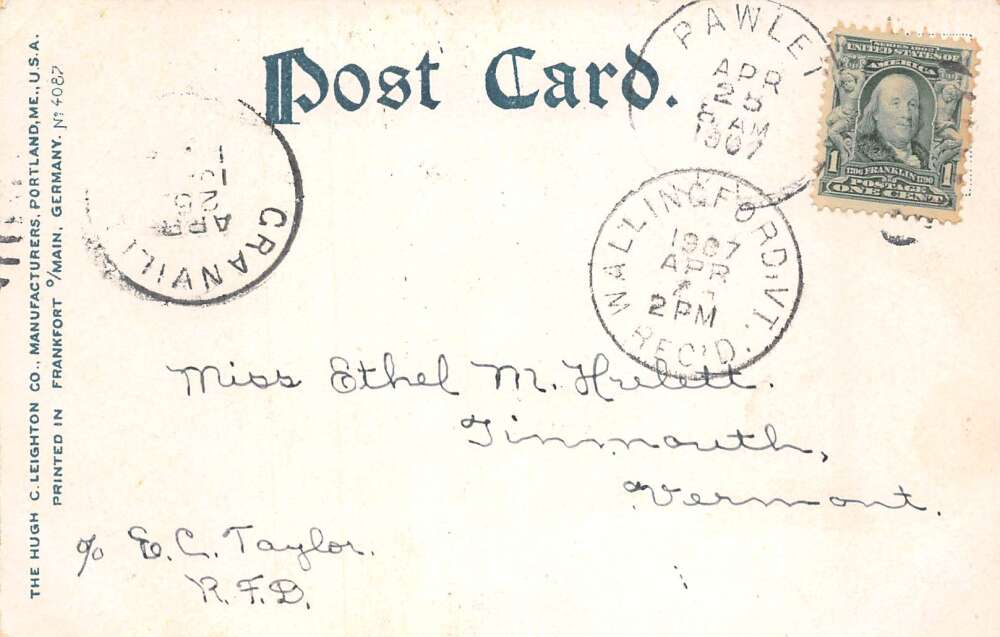 Post Card.
PAWLET
APR
25
AM
1907
SERIES 1902
UNITED STATES OF
AMERICA
1 1
1706 FRANKLIN 1790
POSTAGE
ONE CENT
GRANVIL
APR
WALLINGFORD, VT.
1907
APR
2 PM
REC'D.
Miss Ethel M. Hulett.
Tinmouth,
Vermont.
c/o E. C. Taylor.
R. F. D.
THE HUGH C. LEIGHTON CO., MANUFACTURERS, PORTLAND, ME., U.S.A.
PRINTED IN FRANKFORT o/MAIN, GERMANY. No 4087